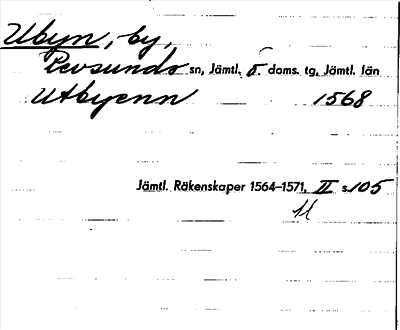 Ubyn, by,
Revsunds sn, Jämtl. ö. doms. tg, Jämtl. län
Utbyenn 1568
Jämtl. Räkenskaper 1564–1571, II s. 105